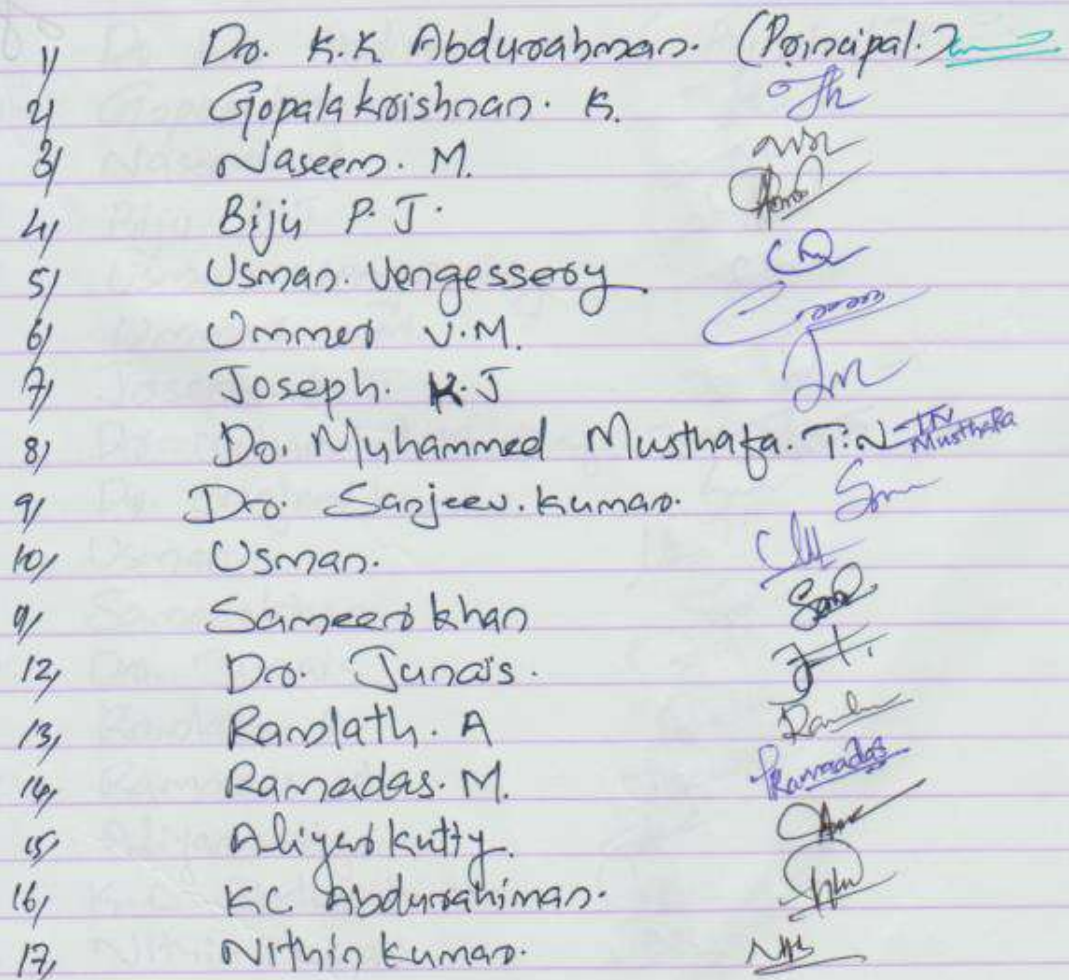 1) Dr. K.K Abdurahman. (Principal.)
2) Gopalakrishnan. K.
3) Naseem. M.
4) Biju P. J.
5) Usman. Vengessery
6) Ummer V.M.
7) Joseph. K.J
8) Dr. Muhammed Musthafa. T.N TN Musthafa
9) Dr. Sanjeev. kumar.
10) Usman.
11) Sameer khan
12) Dr. Junais.
13) Ramlath. A
14) Ramadas. M. Ramadas
15) Aliyar kutty.
16) KC Abdurahiman.
17) Nithin kumar.